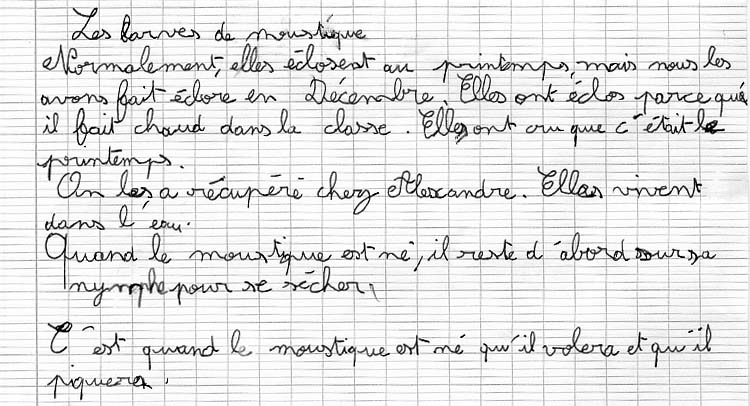 Les larves de moustique
Normalement, elles éclosent au printemps, mais nous les
avons fait éclore en Décembre. Elles ont éclos parce qu'à
il fait chaud dans la classe. Elles ont cru que c'était le
printemps.
On les a récupéré chez Alexandre. Elles vivent
dans l'eau.
Quand le moustique est né, il reste d'abord sur sa
nymphe pour se sécher,
C'est quand le moustique est né qu'il volera et qu'il
piquera.